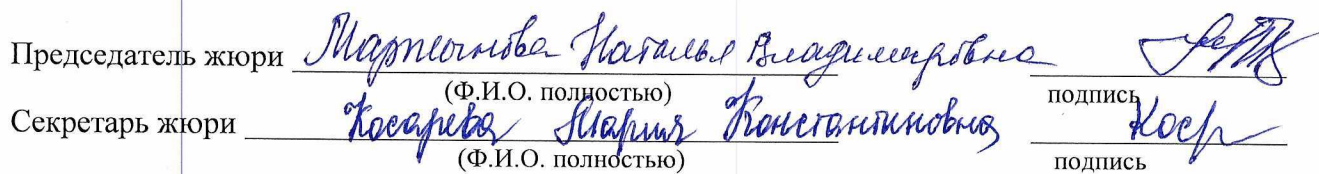 Председатель жюри Мартынова Наталья Владимировна
(Ф.И.О. полностью) подпись
Секретарь жюри Косарева Мария Константиновна Коср
(Ф.И.О. полностью) подпись